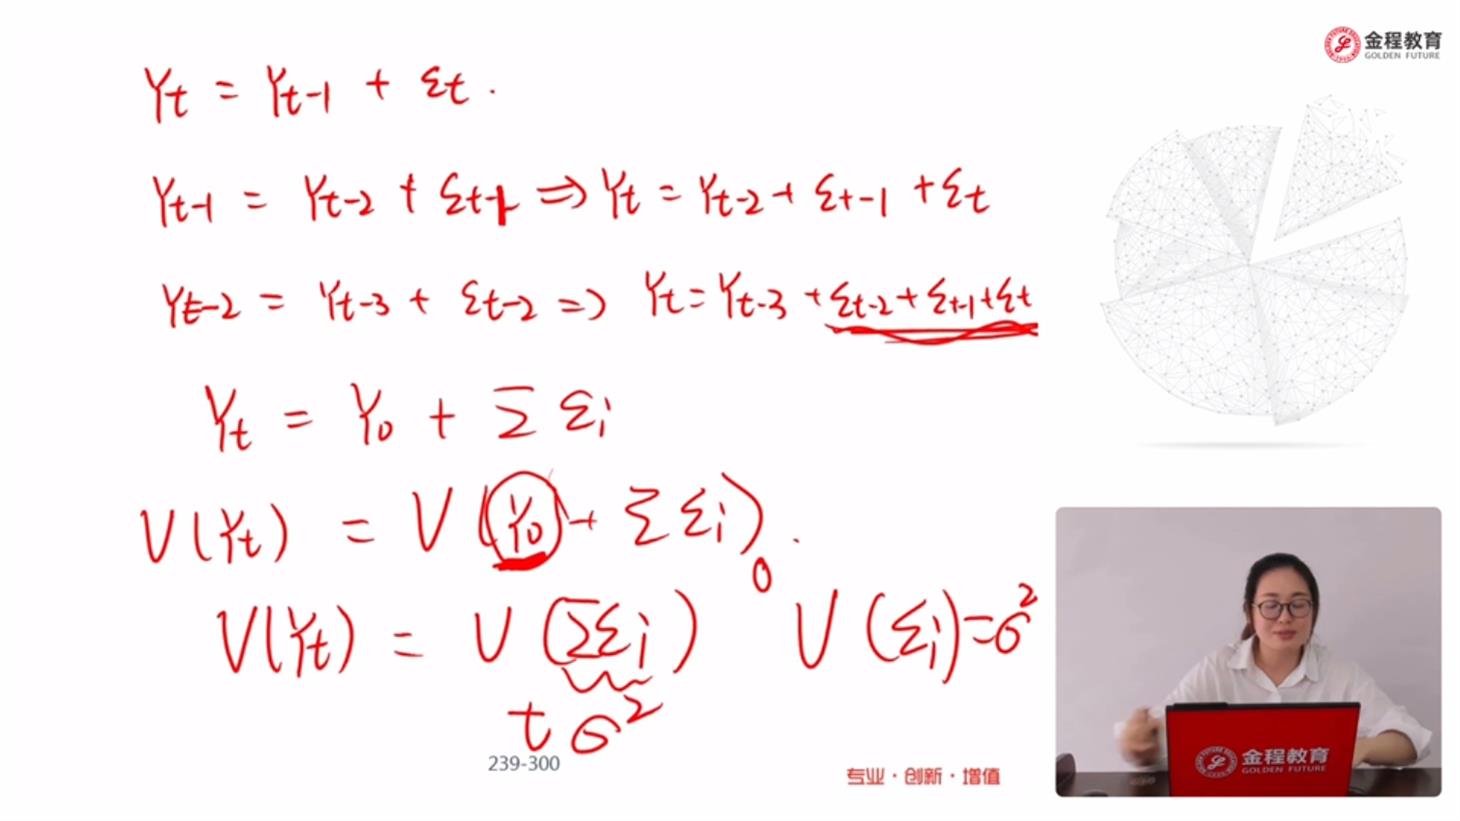 金程教育
GOLDEN FUTURE
Yt = Yt-1 + εt .
Yt-1 = Yt-2 + εt-1 ⇒ Yt = Yt-2 + εt-1 + εt
Yt-2 = Yt-3 + εt-2 ⇒ Yt = Yt-3 + εt-2 + εt-1 + εt
Yt = Y0 + Σ εi
V(Yt) = V (Y0 + Σ εi) .
0
V(Yt) = V (Σεi) V (εi) = σ²
tσ²
239-300
专业·创新·增值
金程教育
GOLDEN FUTURE